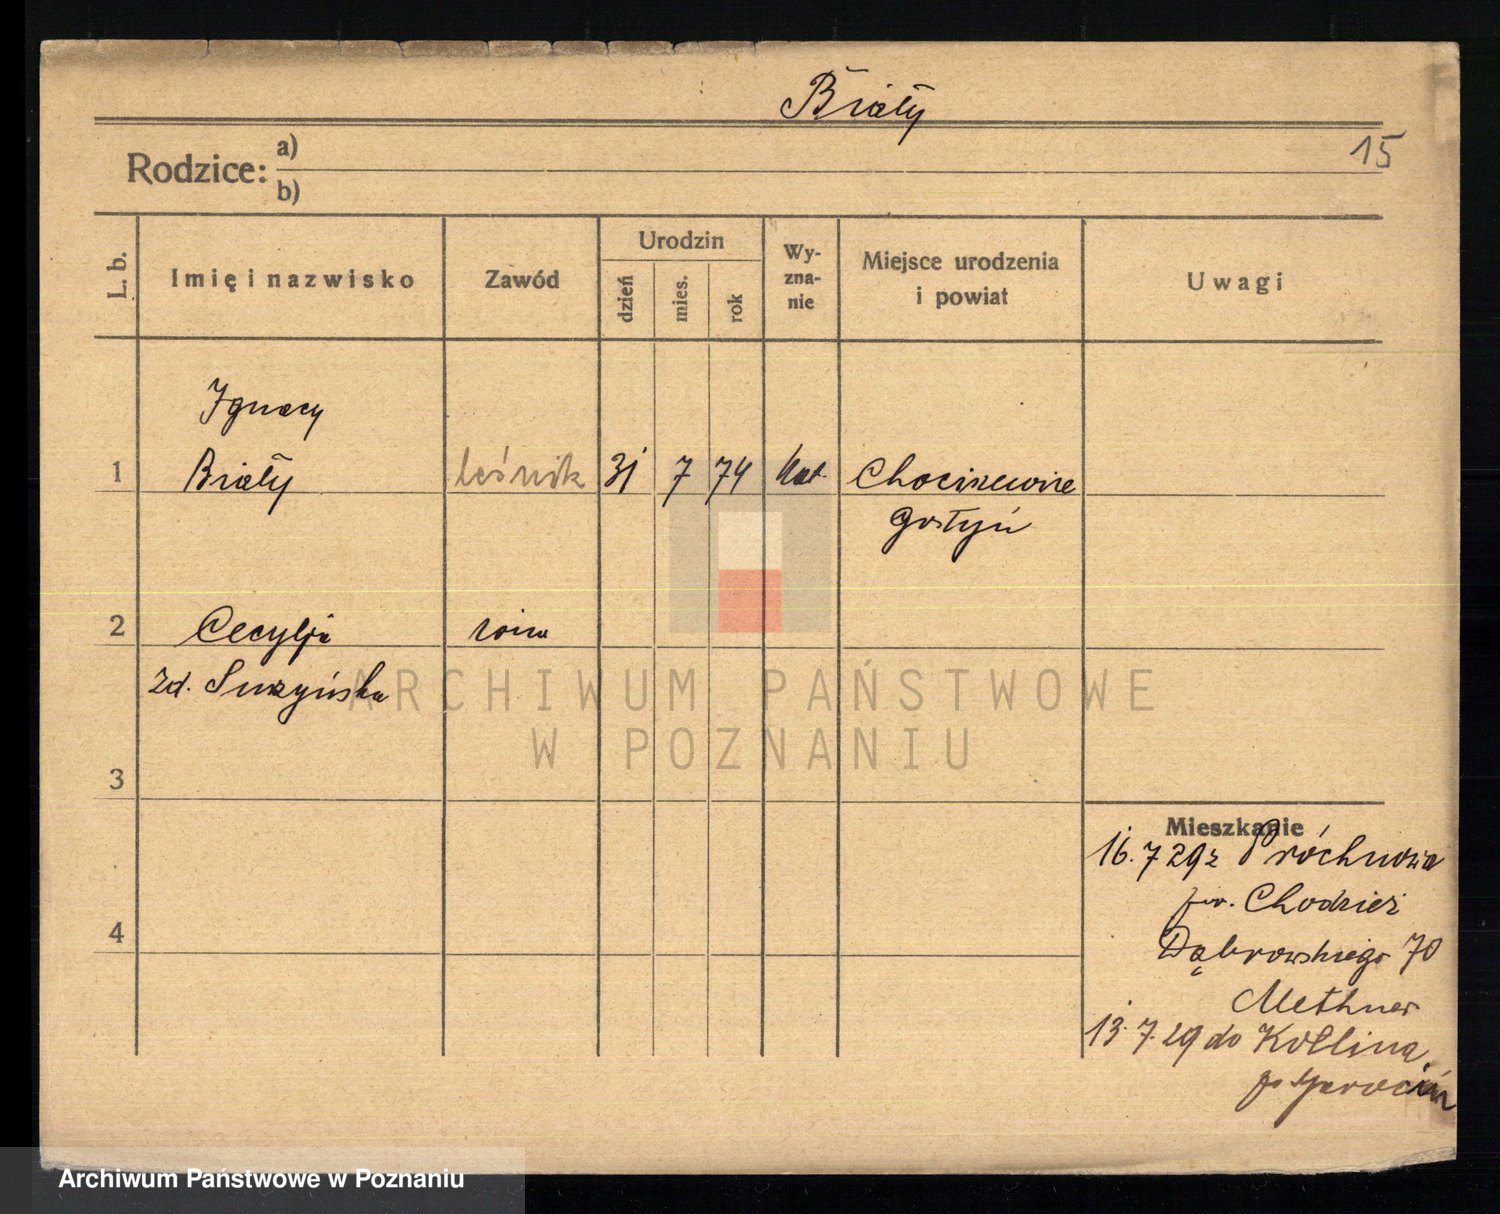 Biały
15
Rodzice: a)
b)
L. b.
Imię i nazwisko
Zawód
Urodzin
dzień
mies.
rok
Wy-
zna-
nie
Miejsce urodzenia
i powiat
Uwagi
Ignacy
1 Biały leśnik 31 7 74 kat. Chociszewice
Gostyń
2 Cecylja żona
zd. Suszyńska
3
4
Mieszkanie
16.7 29 z Próchnowa
pow. Chodzież
Dąbrowskiego 70
Methner
13.7.29 do Kotlina
po Jarocin
ARCHIWUM PAŃSTWOWE
W POZNANIU
Archiwum Państwowe w Poznaniu